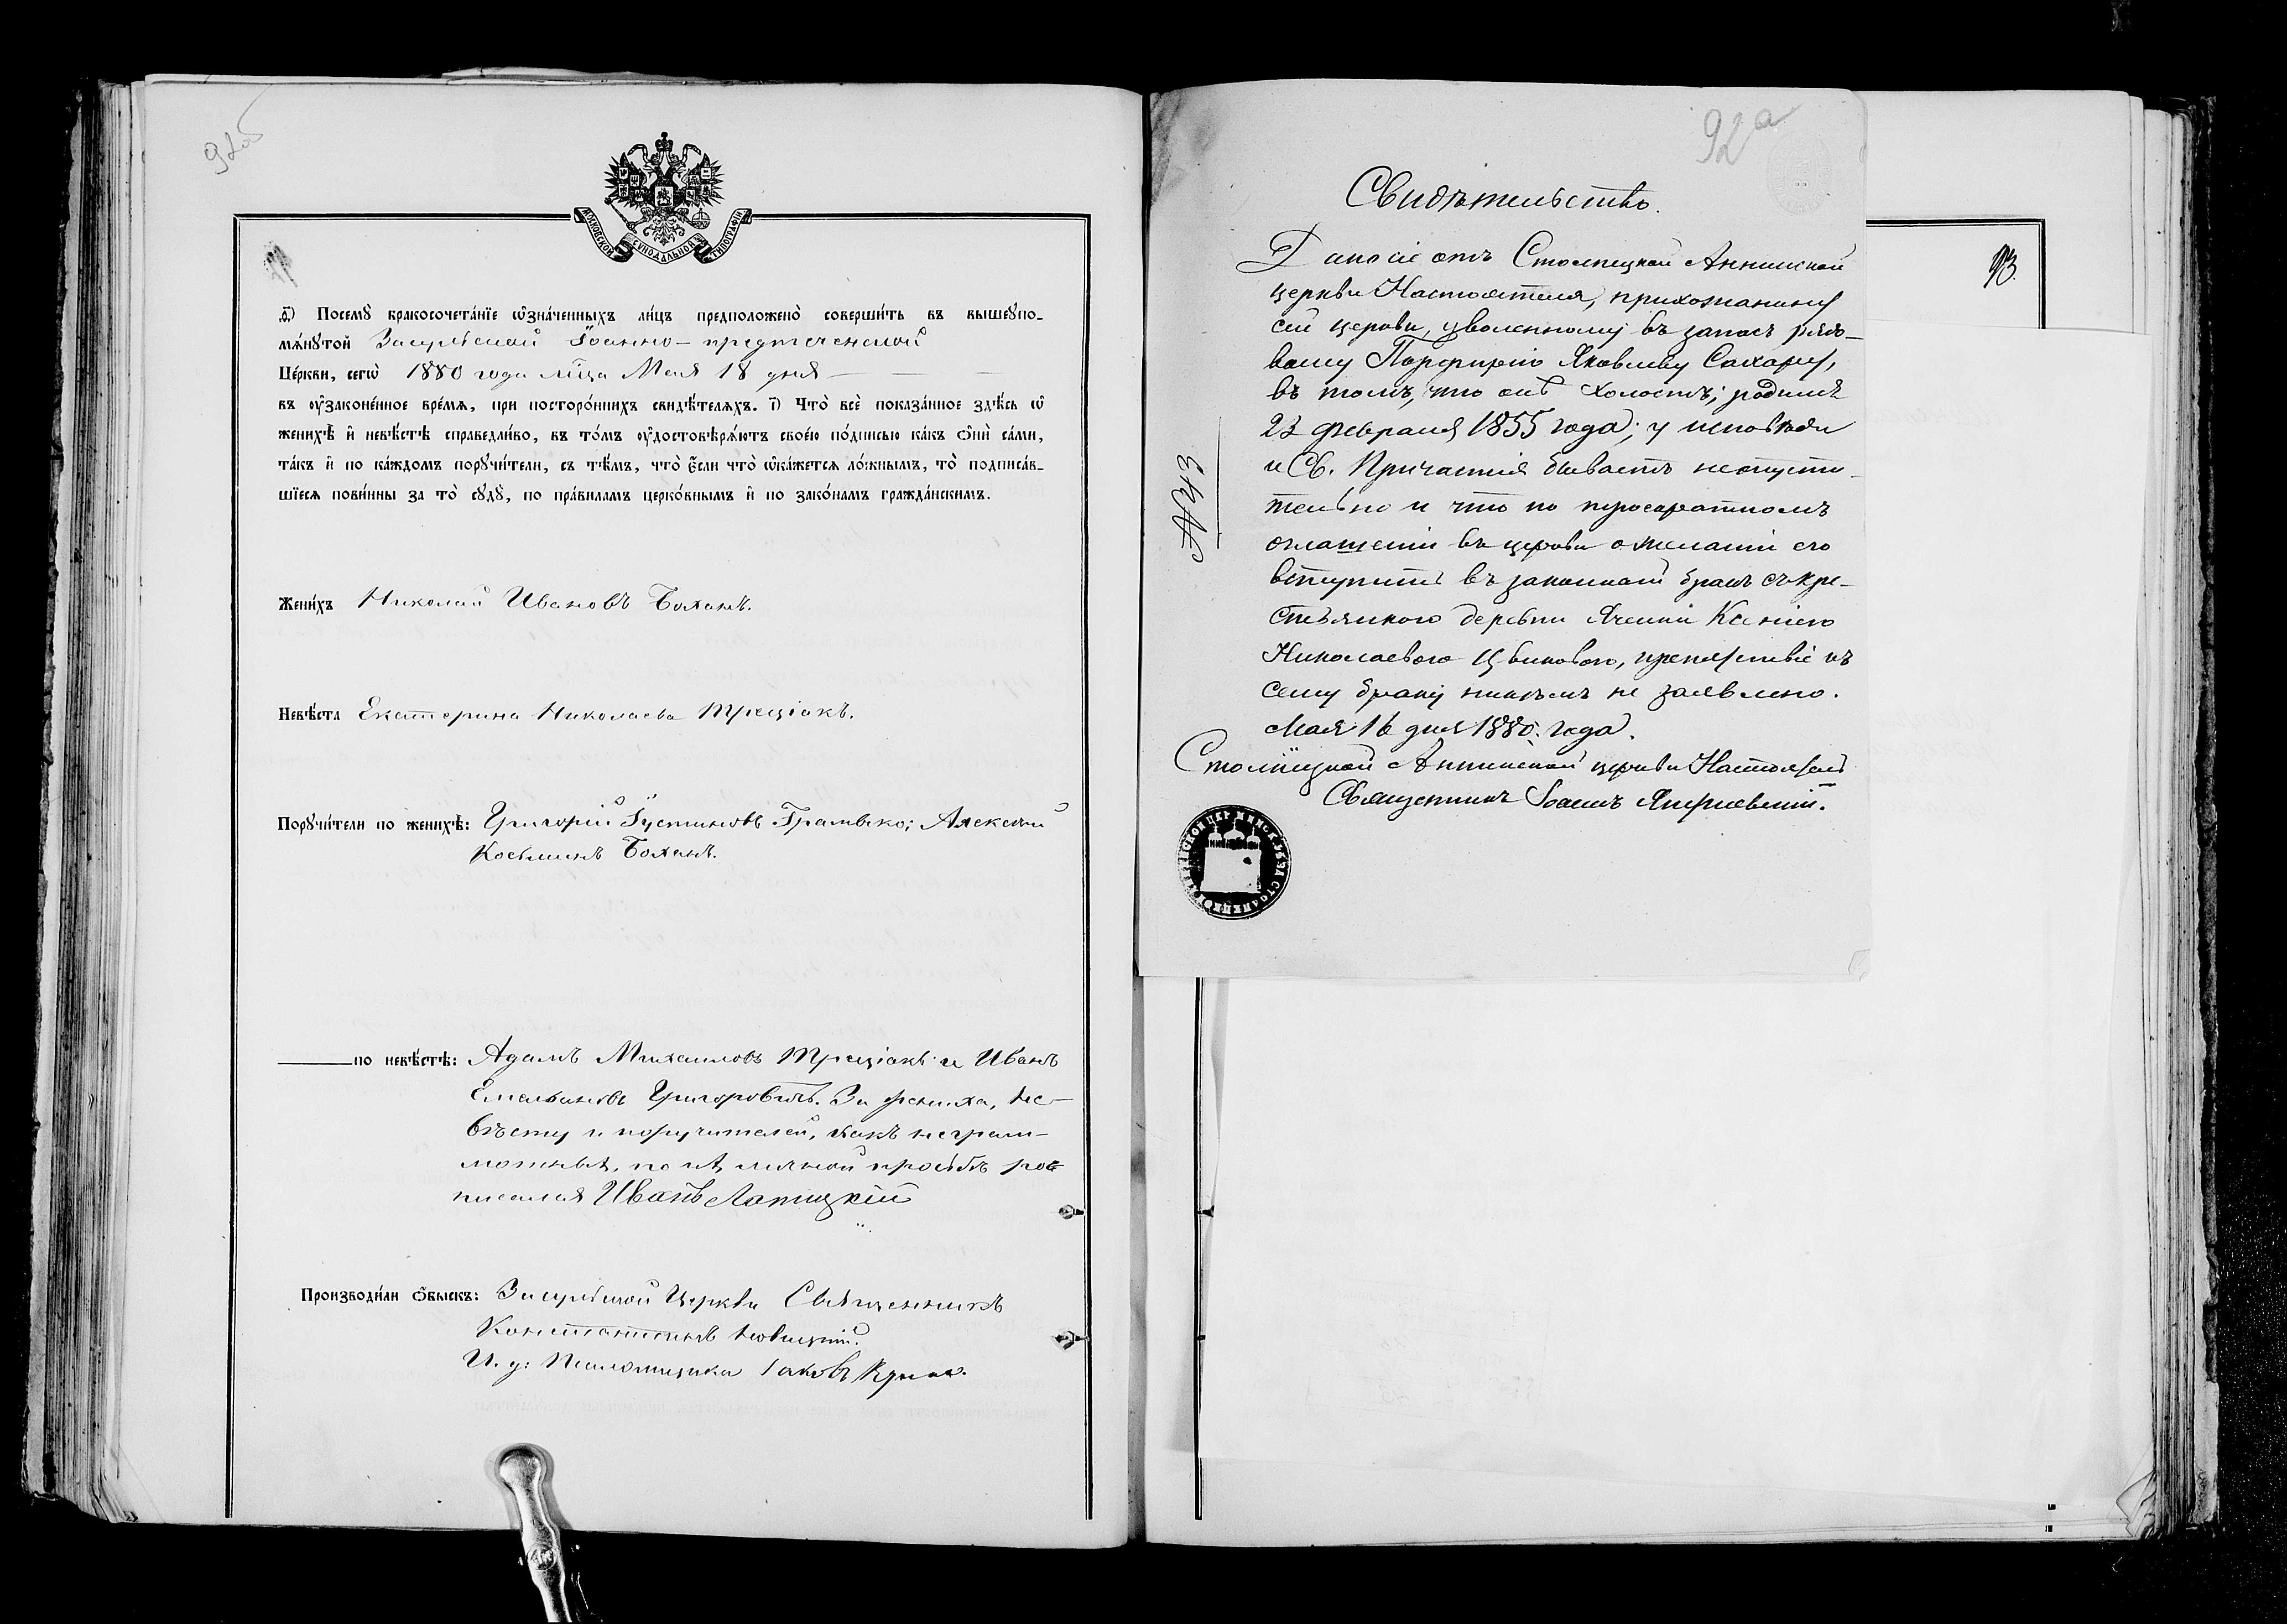 92об
МОСКОВСКОЙ СѴНОДАЛЬНОЙ ТИПОГРАФІИ
Посемꙋ̀ бракосочета́нїе ѡ҆зна́ченныхъ ли́цъ предположено̀ соверши́ть въ вышеꙋпо-
мѧ́нꙋтой Засульской Іоанно-предтеченской
Це́ркви, сегѡ̀ 1880 года м͠ца Мая 18 дня
въ ᲂу҆законе́нное вре́мѧ, при посторо́ннихъ свидѣ́телѧхъ. з҃) Что̀ всѐ пока́занное здѣ́сь ѡ҆
женихѣ̀ и҆ невѣ́стѣ справедли́во, въ то́мъ ᲂу҆достовѣрѧ́ютъ свое́ю по́дписью ка́къ ѻ҆нѝ са́ми,
та́къ и҆ по ка́ждомъ порꙋчи́тели, съ тѣ́мъ, что̀ є҆́сли что̀ ѡ҆ка́жетсѧ ло́жнымъ, то̀ подписа́в-
шїесѧ пови́нны за то̀ сꙋдꙋ̀, по пра́виламъ церко́внымъ и҆ по зако́намъ гражда́нскимъ.
Жени́хъ Николай Ивановъ Боханъ.
Невѣ́ста Екатерина Николаева Трецiакъ.
Порꙋчи́тели по женихѣ̀: Григорій Іустиновъ ; Алексѣй
Косьминъ Боханъ.
по невѣ́стѣ: Адамъ Михаиловъ Трецiакъ и Иванъ
Емельяновъ Григоровичъ. За жениха, не-
вѣсту и поручителей, какъ неграм-
мотныхъ, по ихъ личной просьбѣ рос-
писался Иванъ Лапицкій
Производи́ли ѻ҆́быскъ: Засульской Церкви Священникъ
Константинъ
И. д: Псаломщика Іаковъ
92а
Свидѣтельство.
Дано сіе отъ Столпецкой Аннинской
церкви Настоятеля, прихожанину
сей церкви, уволенному въ запасъ рядо-
вому Порфирію Яковлеву Сахару,
въ томъ, что онъ холостъ; родился
23 февраля 1855 года; у исповѣди
и Св. Причастія бываетъ неопусти-
тельно и что по троекратномъ
оглашеніи въ церкви о желаніи его
вступить въ законный бракъ съ кре-
стьянкою деревни Ксеніею
Николаевою , препятствіе къ
сему браку никѣмъ не заявлено.
Мая 16 дня 1880. года.
Столпецкой Аннинской церкви Настоятель
Священникъ Іоаннъ
№ 43
93.